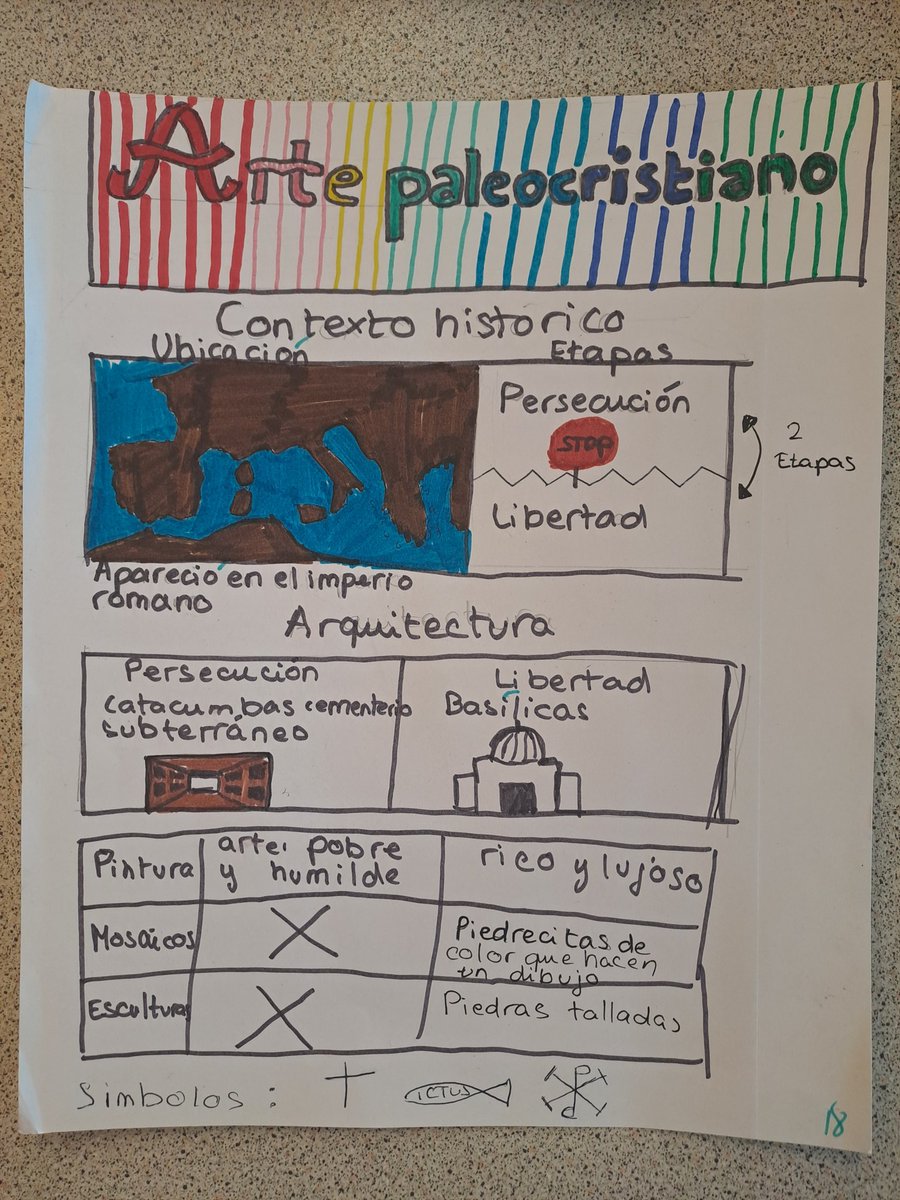 Arte paleocristiano
Contexto historico
Ubicación
Etapas
Persecución
STOP
Libertad
2
Etapas
Aparecio en el imperio
romano
Arquitectura
Persecución
catacumbas cementerio
subterráneo
Libertad
Basílicas
Pintura
arte. pobre
y humilde
rico y lujoso
Mosaicos
Piedrecitas de
color que hacen
un dibujo
Escultura
Piedras talladas
Simbolos :
ICTUS